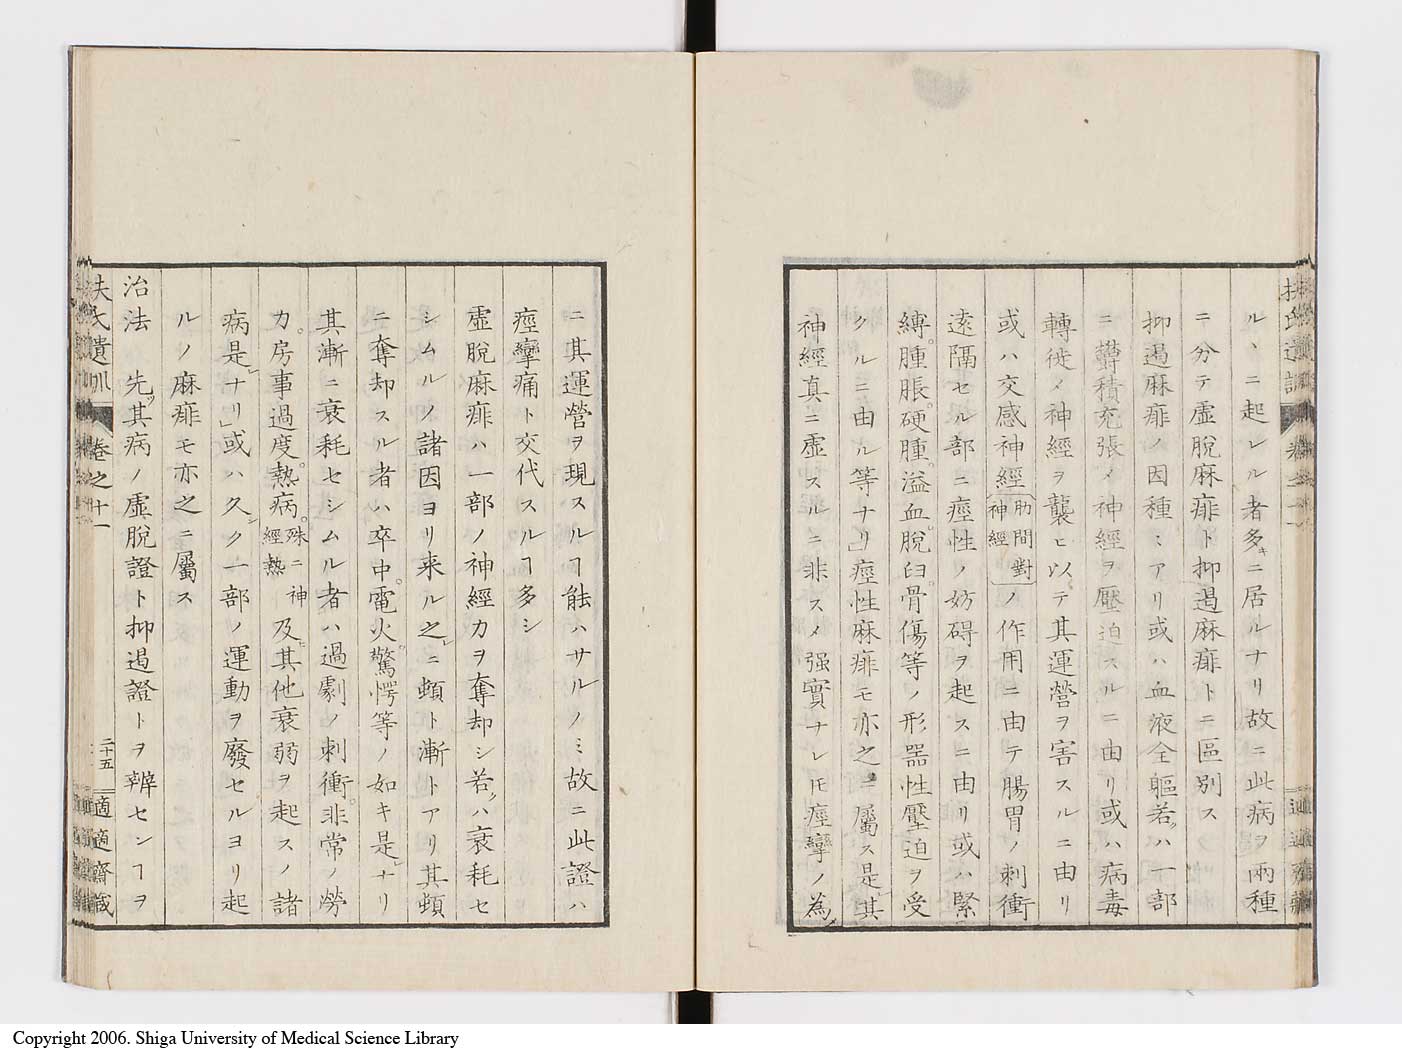 ルヽニ起レル者多キニ居ルナリ故ニ此病ヲ兩種
ニ分テ虛脫麻痱ト抑遏麻痱トニ區別ス
抑遏麻痱ノ因種ミアリ或ハ血液全軀若クハ一部
ニ鬱積充張メ神經ヲ壓迫スルニ由リ或ハ病毒
轉徙メ神經ヲ襲ヒ以テ其運營ヲ害スルニ由リ
或ハ交感神經肋間對神經ノ作用ニ由テ腸胃ノ刺衝
遠隔セル部ニ痙性ノ妨碍ヲ起スニ由リ或ハ緊
縛。腫脹。硬腫。溢血。脫臼。骨傷等ノ形器性壓迫ヲ受
クルニ由ル等ナリ」痙性麻痱モ亦之ニ屬ス是其
神經真ニ虛スルニ非スメ强實ナレ𪜈痙攣ノ為メ
ニ其運營ヲ現スルヿ能ハサルノミ故ニ此證ハ
痙攣痛ト交代スルヿ多シ
虛脫麻痱ハ一部ノ神經力ヲ奪却シ若クハ衰耗セ
シムルノ諸因ヨリ来ル之ニ頓ト漸トアリ其頓
ニ奪却スル者ハ卒中。電火。驚愕等ノ如キ是ナリ
其漸ニ衰耗セシムル者ハ過劇ノ刺衝。非常ノ勞
力。房事過度。熱病。殊ニ神經熱及其他衰弱ヲ起スノ諸
病是ナリ」或ハ久シク一部ノ運動ヲ廢セルヨリ起
ルノ麻痱モ亦之ニ屬ス
治法 先其病ノ虛脫證ト抑遏證トヲ辨センヿヲ
扶氏遺訓 卷之十一 二十五 適適齋藏
Copyright 2006. Shiga University of Medical Science Library